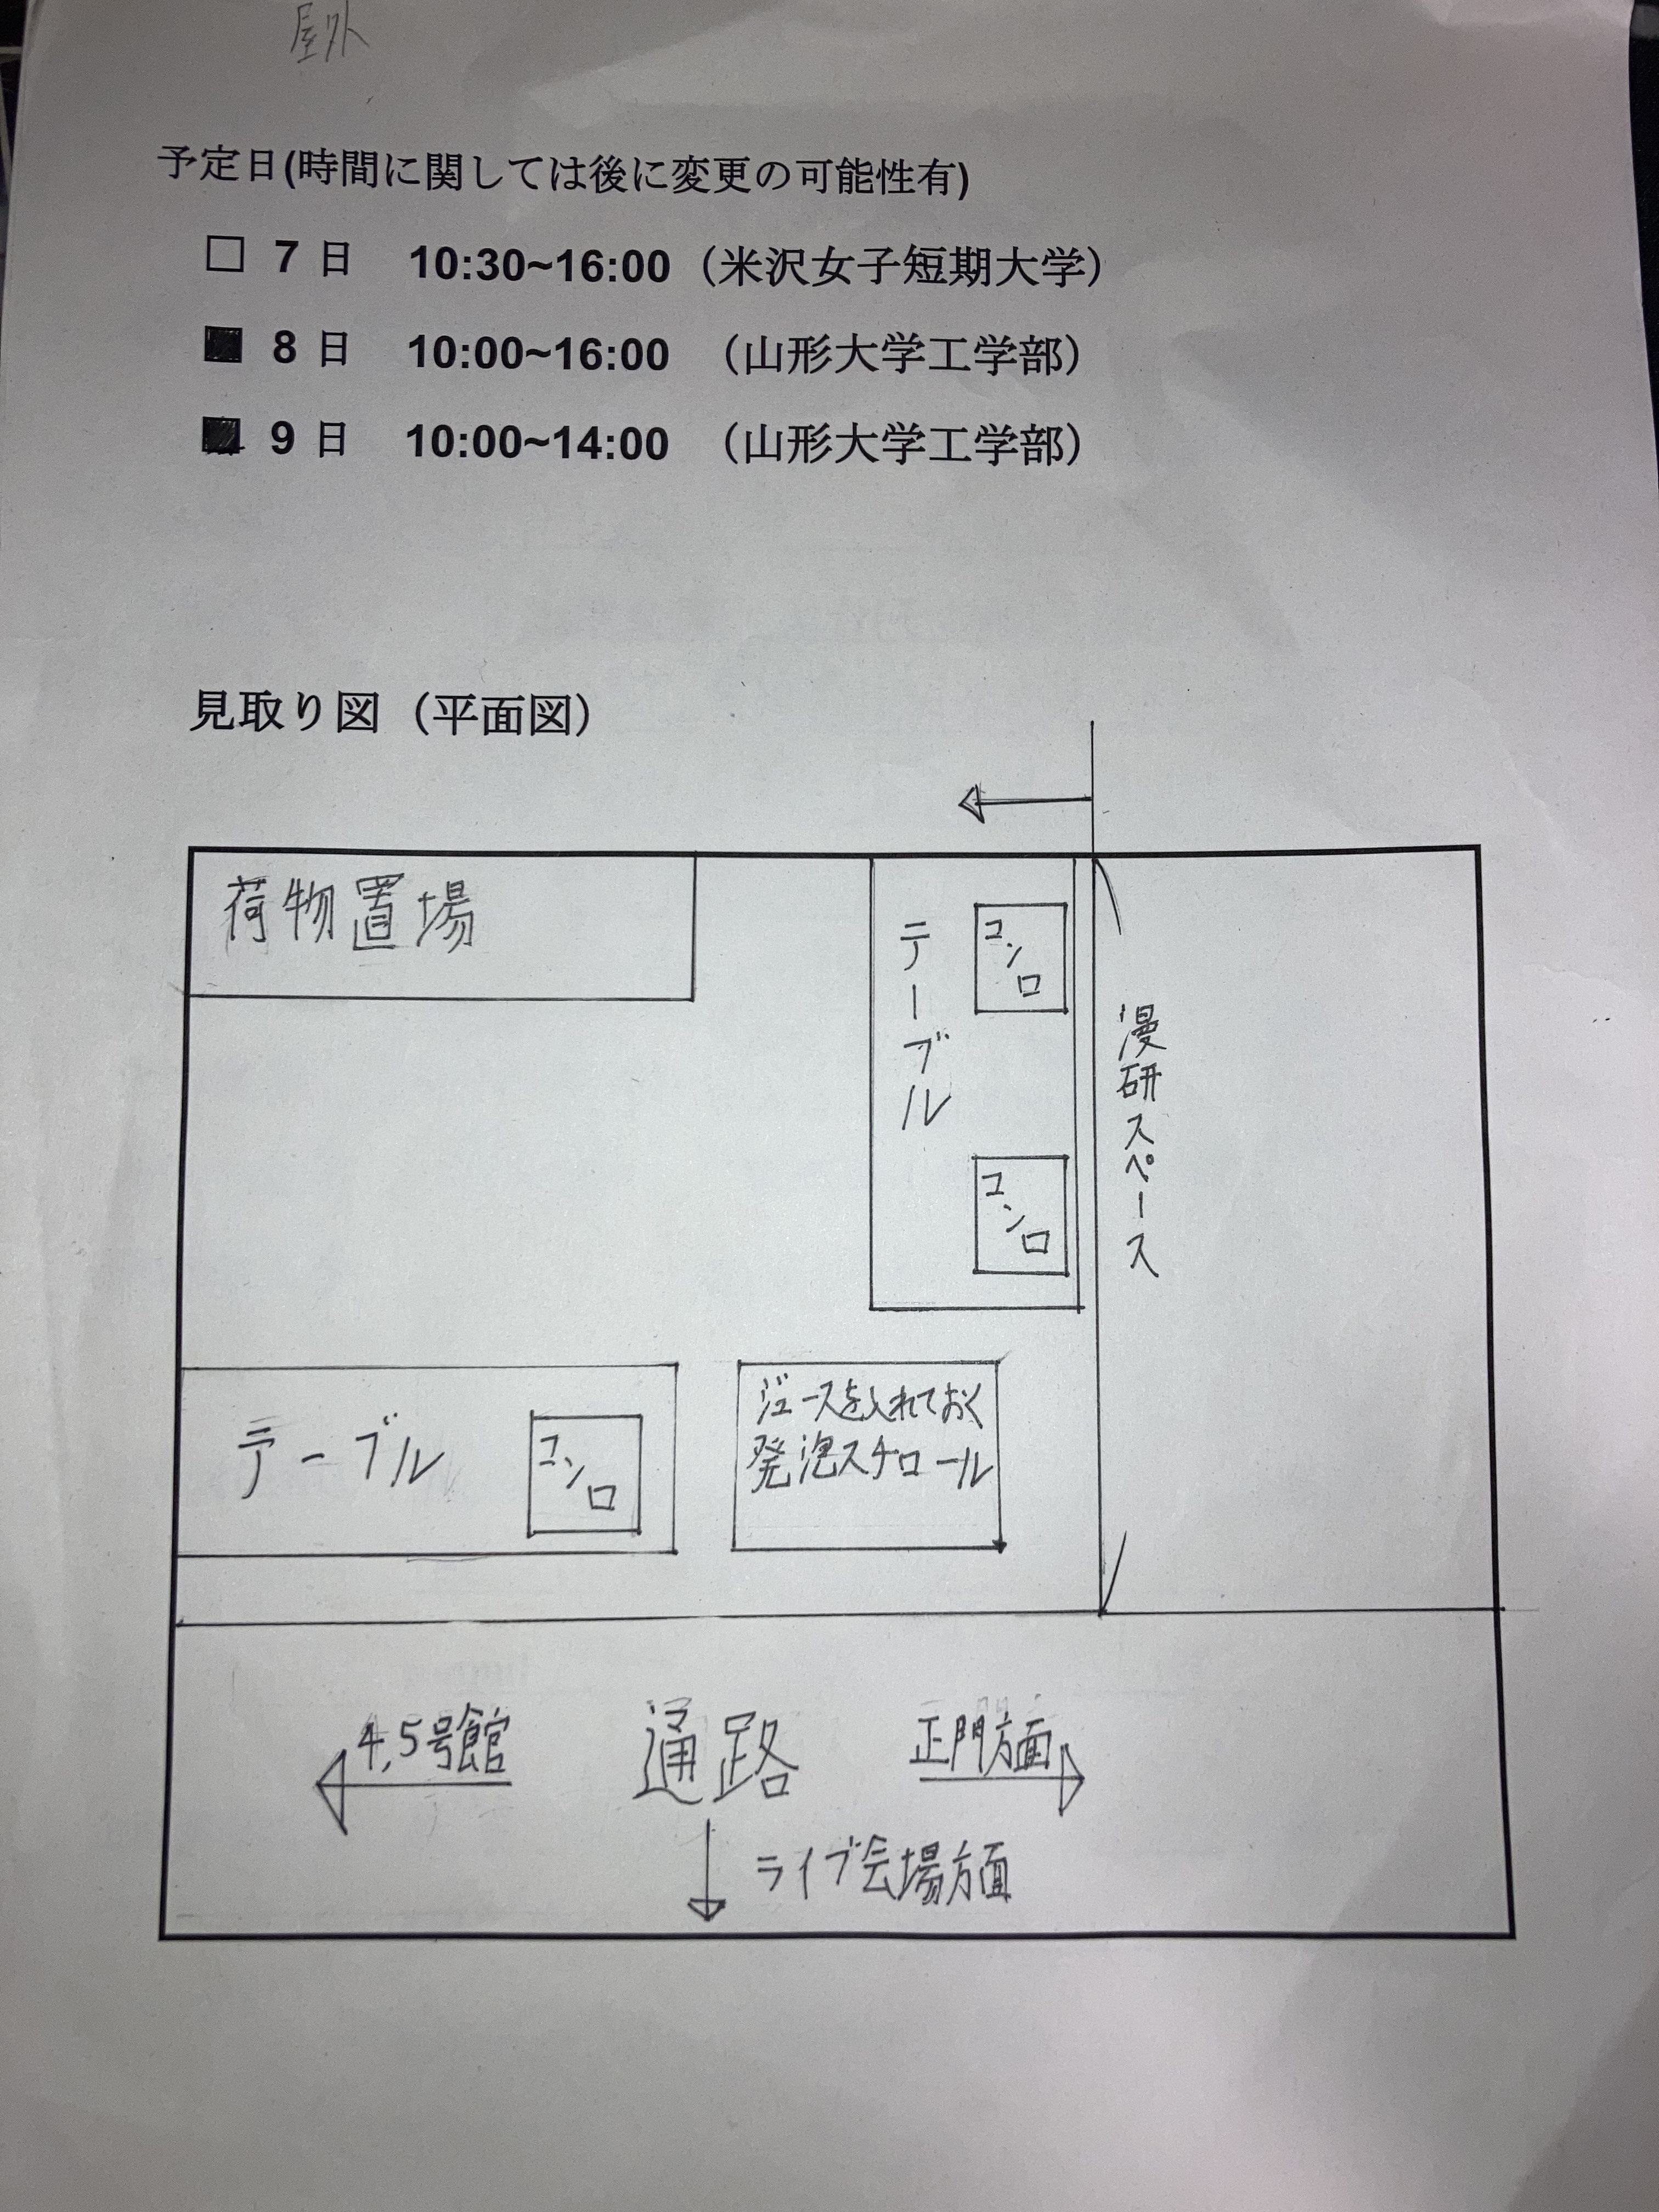 屋外
予定日(時間に関しては後に変更の可能性有)
□ 7 日 10:30~16:00（米沢女子短期大学）
■ 8 日 10:00~16:00 （山形大学工学部）
■ 9 日 10:00~14:00 （山形大学工学部）
見取り図（平面図）
荷物置場
テーブル
コンロ
コンロ
漫研スペース
テーブル
コンロ
ジュースを入れておく
発泡スチロール
4,5号館
通路
正門方面
ライブ会場方面